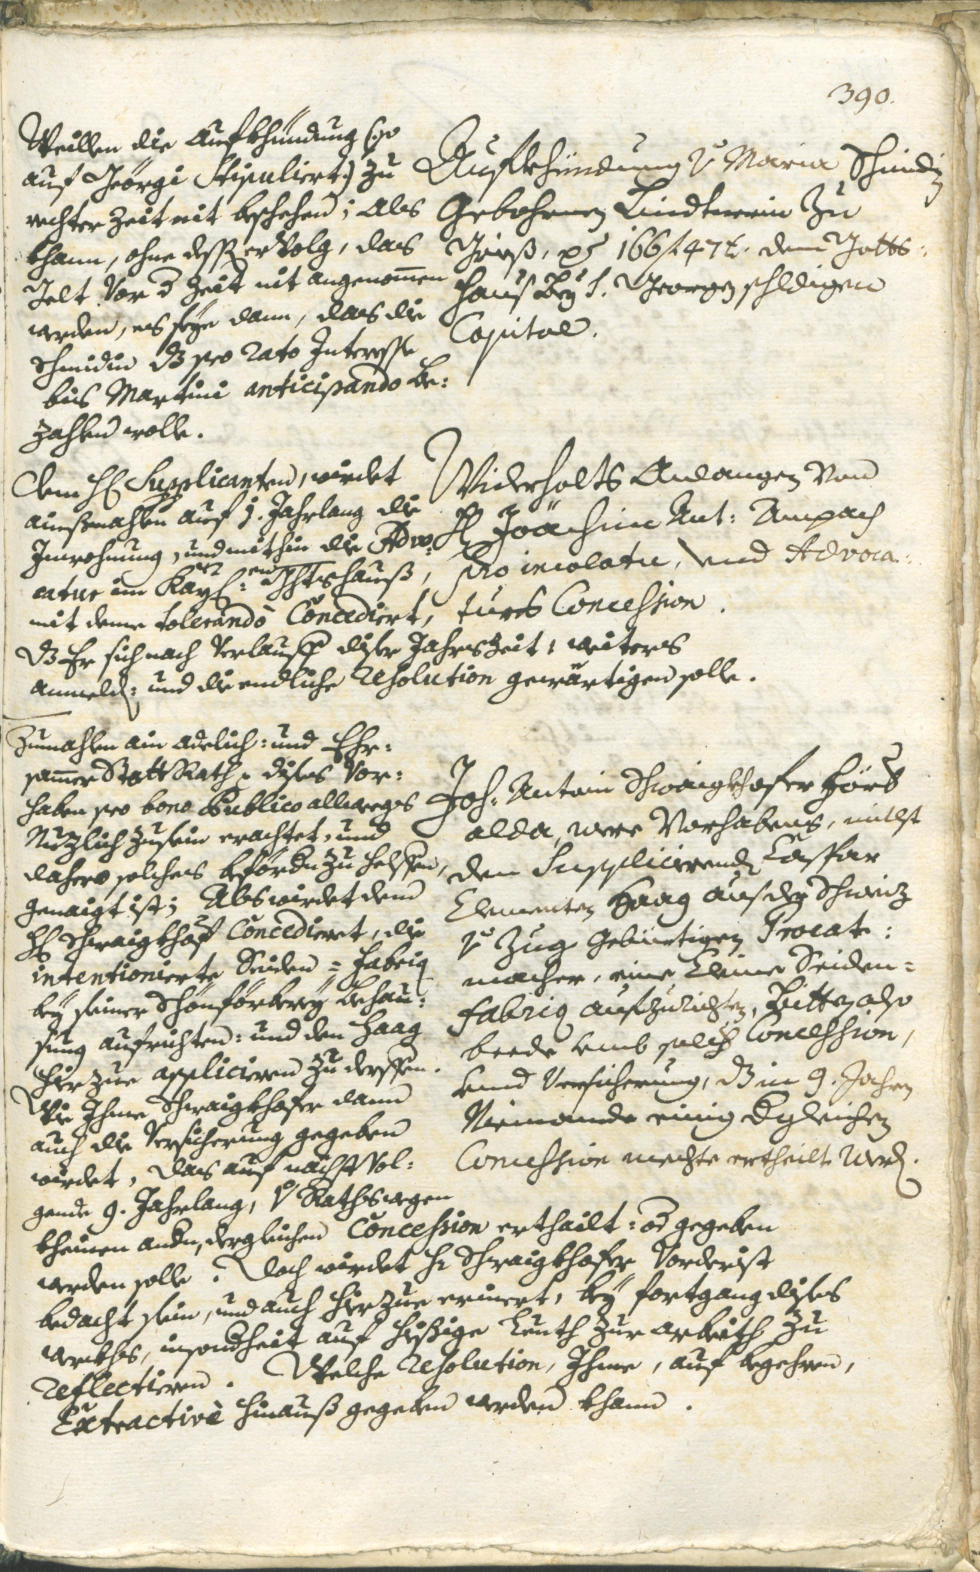 390.
Weillen die Aufkhündung (so
auf Geörgi stipuliert) zu
rechter Zeit nit beschehen; Als
khann, ohne dessen ervolg, das
Gelt vor d Zeit nit angenommen
werden, es seye dann, das die
Schmidin dz pro rato Interesse
bis Martini anticipando be:
zahlen wolle.
Aufkhündung v Maria Schmidin
Gebohrnen Lindtnerin zu
166 f 47 x. dem Gotts:
haus bey S. Georgen schuldigen
Capital.
Dem H Supplicanten, wirdet
ainsmahlen auf 1. Jahrlang die
Inwohnung, und mithin die Advo:
catur im Kay: Ghtshauß,
mit deme tolerando Concediert,
dz Er sich nach Verlauff diser Jahrszeit, weiters
anmelden: und die endliche resolution gewärtigen solle.
Widerholts Anlangen von
H Joachim Ant: Ampach
pro incolatu, und Advoca:
turs Concession.
Zumahlen ain adelich: und Ehr:
samer Statt Rath, dises Vor:
haben pro bono Publico allweegs
Nuzlich zusein erachtet, und
dahero solches befördern zu helffen,
genaigt ist; Als wirdet dem
H Schwaigkhofer Concediert, die
intentionierte Seiden = Fabriq
bey seiner Schönförberey Behau:
sung aufrichten: und den Haag
hierzue applicieren zu derffen.
Wie Ihme Schwaigkhofer dann
auch die Versicherung gegeben
wirdet, das auf nächst Vol:
gende 9. Jahrlang, v Rathswegen
kheinen andern, dergleichen Concession erthailt: od gegeben
werden solle. Doch wirdet H Schwaigkhofer vorderist
bedacht sein, und auch hierzue erinert, bey fortgang dises
werkhs, insonderheit auf hiesige Leuth zur arbeith zu
reflectieren. Welche resolution, Ihme, auf begehren,
Extractivè hinauß gegeben werden khann.
Joh: Antoni Schwaigkhofer Förb
alda, were Vorhabens, mitlst
dem Supplicierenden Caspar
Clementen Haag aus der Schweiz
v Zug Gebürtigen Procat:
macher, eine kleine Seiden=
fabriq aufzurichten, Bitten also
beede umb solche Concession,
unnd Versicherung, dz in 9. Jahren
Niemande einig dgleichen
Concession mechte ertheilt werden.